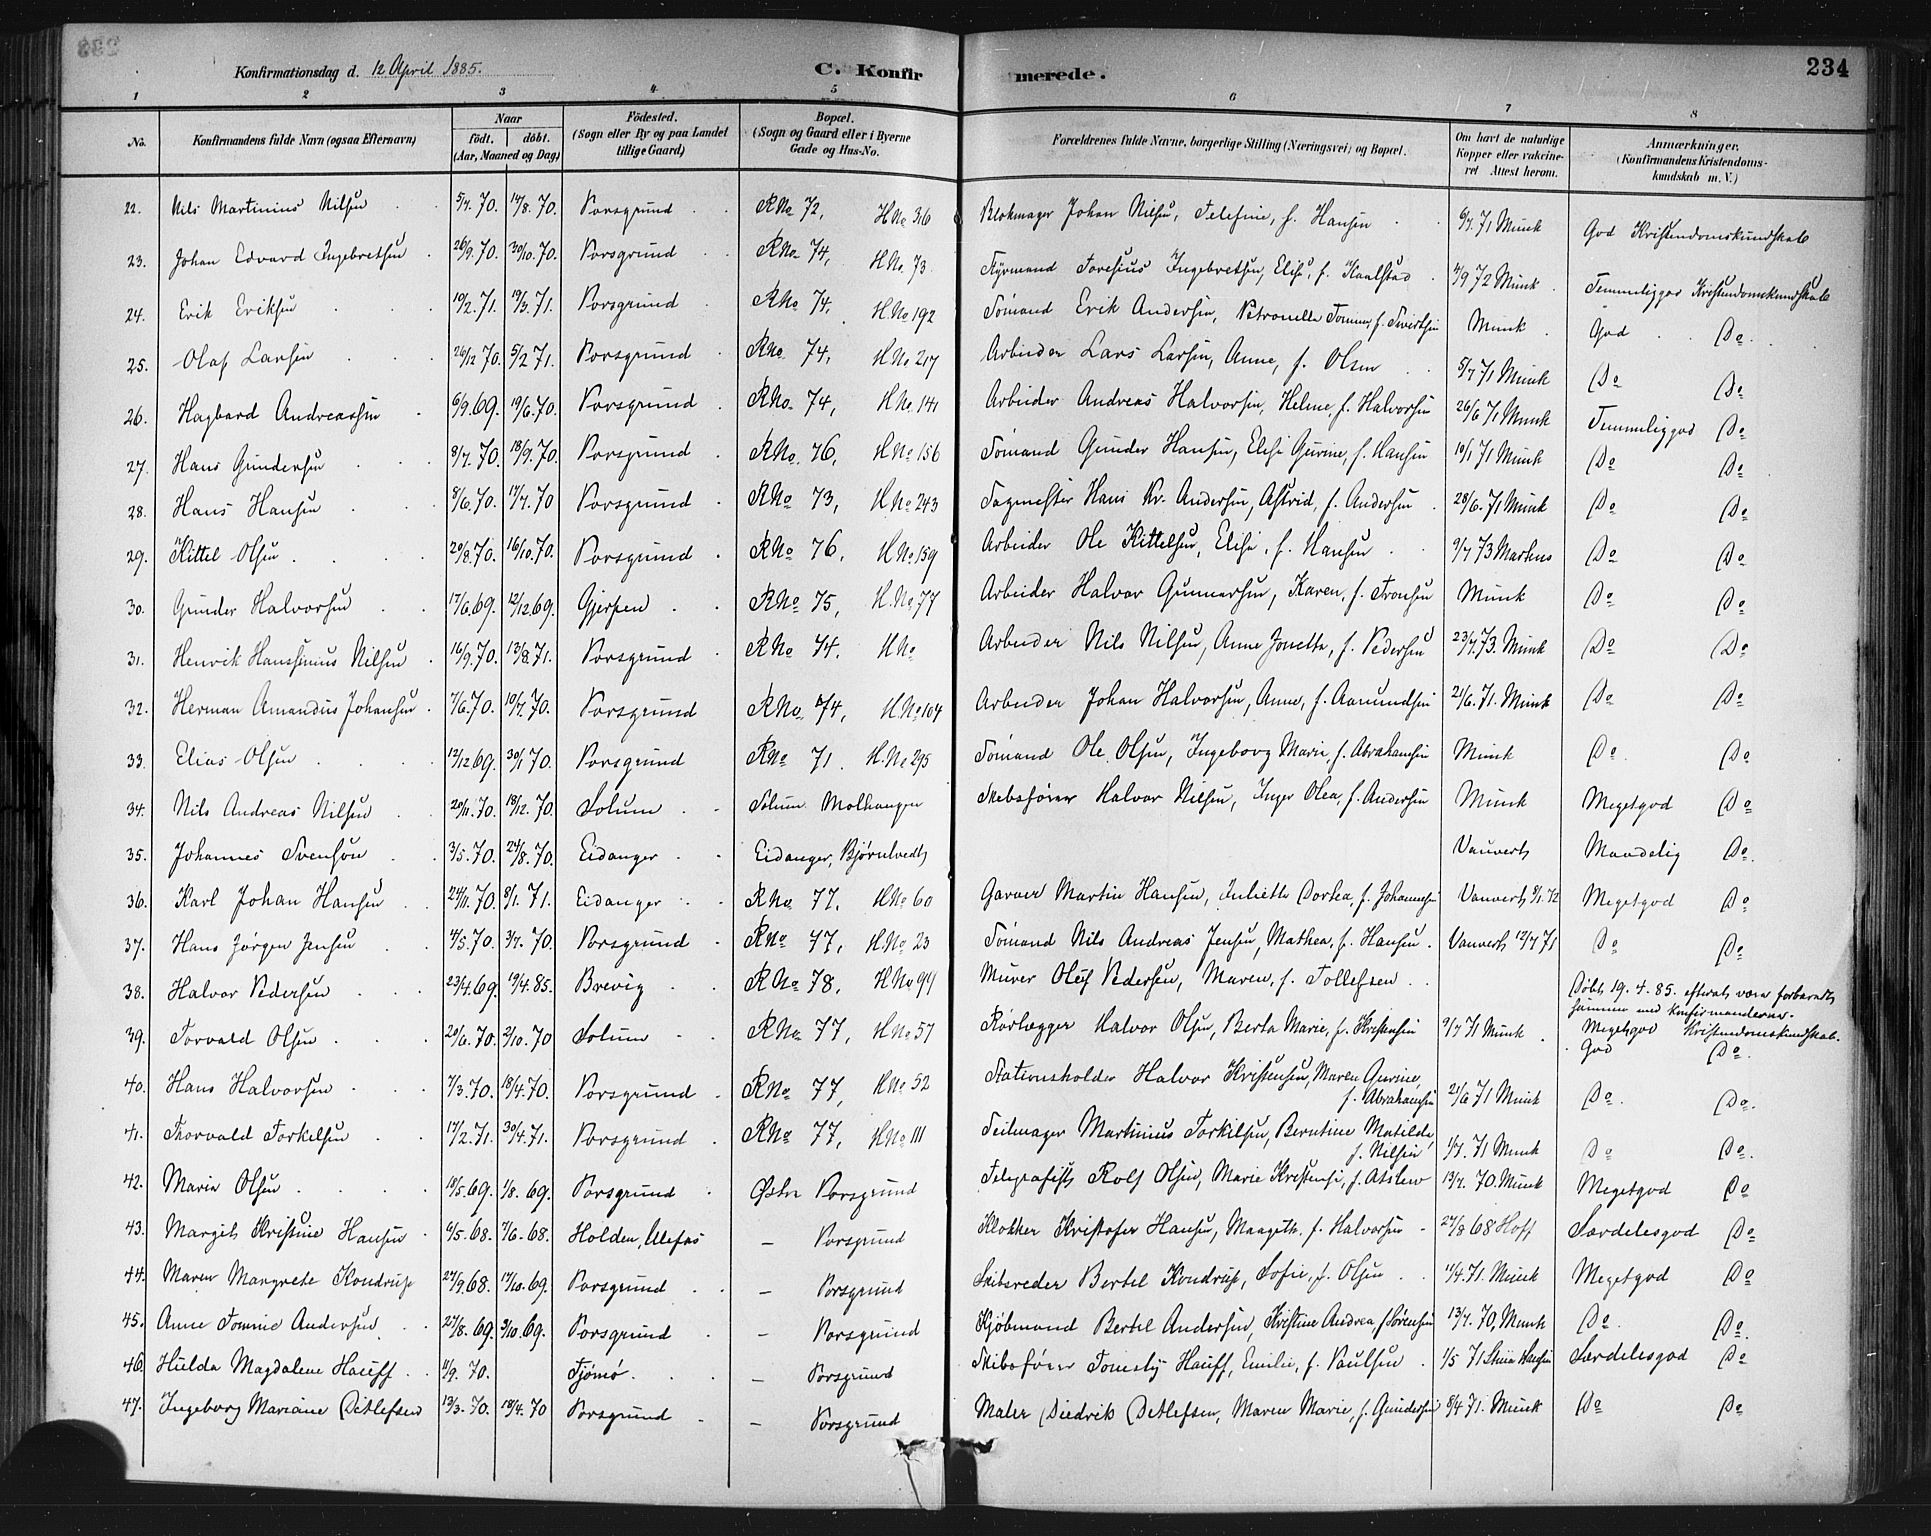 Konfirmationsdag d. 12 April 1885. C. Konfirmerede. 234
1 2 3 4 5 6 7 8
No. Konfirmandens fulde Navn (ogsaa Efternavn) Naar født. døbt. (Aar, Maaned og Dag) Fødested. (Sogn eller By og paa Landet tillige Gaard) Bopæl. (Sogn og Gaard eller i Byerne Gade og Hus-No. Forældrenes fulde Navne, borgerlige Stilling (Næringsvei) og Bopæl. Om havt de naturlige Kopper eller vakcineret Attest herom. Anmærkninger. (Konfirmandens Kristendomskundskab m. V.)
22. Nils Martinius Nilsen 5/4. 70. 14/8. 70. Porsgrund RNo 72, HNo 316 Blokmager Johan Nilsen, Telefine, f. Hansen 6/7. 71 Munk God Kristendomskundskab
23. Johan Edvard Ingebretsen 26/9. 70. 30/10. 70. Porsgrund RNo 74, HNo. 73 Styrmand Toresius Ingebretsen, Elise, f. Kaalstad 4/9 72 Munk Temmeliggod Kristendomskundskab
24. Erik Eriksen 10/2. 71. 19/3. 71. Porsgrund RNo 74, HNo 192 Sømand Erik Andersen, Petronelle f. Sivertsen Munk God Do
25. Olaf Larsen 26/12 70. 5/2 71. Porsgrund RNo. 74, HNo 217 Arbeider Lars Larsen, Anne, f. Olsen 5/7 71 Munk Do Do
26. Hagbard Andreassen 6/9. 69. 19/6. 70. Porsgrund RNo. 74, HNo. 141 Arbeider Andreas Halvorsen, Helene, f. Halvorsen 26/6 71 Munk Temmeliggod Do
27. Hans Gundersen 8/7. 70. 18/9. 70. Porsgrund RNo. 76, HNo 156 Sømand Gunder Hansen, Elise Gurine, f. Hansen 10/1 71 Munk Do Do
28. Hans Hansen 8/6. 70. 17/7. 70 Porsgrund RNo 73, HNo 243 Sagmester Hans Kr. Andersen, Astrid, f. Andersen 28/6. 71 Munk Do Do
29. Kittel Olsen 20/8. 70. 16/10. 70. Porsgrund RNo 76, HNo 159 Arbeider Ole Kittelsen, Elise, f. Hansen 9/7 73 Markus Do Do
30. Gunder Halvorsen 17/6. 69. 12/12 69. Gjerpen RNo 75, H.No. 77 Arbeider Halvor Gunnersen, Karen, f. Tronsen Munk Do Do
31. Henrik Hanssinius Nilsen 16/9. 70. 13/8. 71. Porsgrund RNo 74. HNo Arbeider Nils Nilsen, Anne Jonette, f. Pedersen 23/7. 73. Munk Do Do
32. Herman Amandus Johansen 7/6. 70. 10/7. 70. Porsgrund RNo 74, H.No 104 Arbeider Johan Halvorsen, Anne, f. Aamundsen 21/6. 71. Munk Do Do
33. Elias Olsen 12/12 69. 30/1 70. Porsgrund RNo 71. H.No 295 Sømand Ole Olsen, Ingeborg Marie, f. Abrahamsen Munk Do Do
34. Nils Andreas Nilsen 20/11. 70. 18/12. 70. Solum Solum Molhaugen Skibsfører Halvor Nilsen, Inger Olea, f. Andersen Munk Megetgod Do
35. Johannes Svenson 3/5. 70. 24/8. 70. Eidanger Eidanger, Bjørntvedt Vauvert Maadelig Do.
36. Karl Johan Hansen 24/11. 70. 8/1. 71. Eidanger RNo. 77. HNo 60 Garver Martin Hansen, Juliette Dortea, f. Johannesen Vauvert 8/1. 72 Megetgod Do
37. Hans Jørgen Jensen 4/5. 70. 3/7. 70. Porsgrund RNo 77, HNo 23 Sømand Nils Andreas Jensen, Mathea, f. Hansen. Vauvert 12/7 71 Do Do
38. Halvor Pedersen 23/4. 69. 19/4. 85. Brevig RNo 78, HNo 94 Murer Oluf Pedersen, Maren, f. Tollefsen Døbt 19. 4. 85. efterat være forberedt
sammen med Konfirmanderne.
Megetgod Kristendomskundskab.
39. Torvald Olsen 20/6. 70. 2/10. 70 Solum RNo. 77, HNo 57 Rørlægger Halvor Olsen, Berta Marie, f. Kristensen 9/7 71 Munk God Do.
40. Hans Halvorsen 7/3. 70. 18/4. 70. Porsgrund RNo 77, HNo 52 Stationsholder Halvor Kristensen, Maren Gurine, f. Abrahamsen 21/6 71 Munk Do Do.
41. Thorvald Torkelsen 17/2. 71. 30/4. 71. Porsgrund RNo 77, HNo 111 Seilmager Martinius Torkilsen, Berntine Matilde, f. Nilsen 1/7. 71 Munk Do Do.
42. Maria Olsen 18/5 69. 1/8. 69. Porsgrund Østre Porsgrund Telegrafist Rolf Olsen, Marie Kristense, f. 13/7. 70. Munk Megetgod Do
43. Margit Kristine Hansen 6/5. 68. 7/6. 68. Holden, Ulefos – Porsgrund Klokker Kristofer Hansen, Maageth, f. Halvorsen 27/8 68 Hoff Særdelesgod Do
44. Maren Margrete Kondrup 27/9. 68. 17/10. 69. Porsgrund – Porsgrund Skibsreder Bertel Kondrup, Sofie, f. Olsen 11/4. 71. Munk Megetgod Do
45. Anne Tomine Andersen 27/8. 69. 3/10. 69. Porsgrund – Porsgrund Kjøbmand Bertel Andersen, Kristine Andrea f Sørensen 13/7. 70, Munk Do. Do.
46. Hulda Magdalene Hauff 11/9. 70. Tjømø – Porsgrund Skibsfører Hauff, Emilie, f. Paulsen 1/5 71 Hansen Særdelesgod Do
47. Ingeborg Mariane Detlefsen 13/3. 70. 18/4. 70 Porsgrund – Porsgrund Maler Diedrik Detlefsen, Maren Marie, f. Gundersen 8/4 71. Munk Do Do